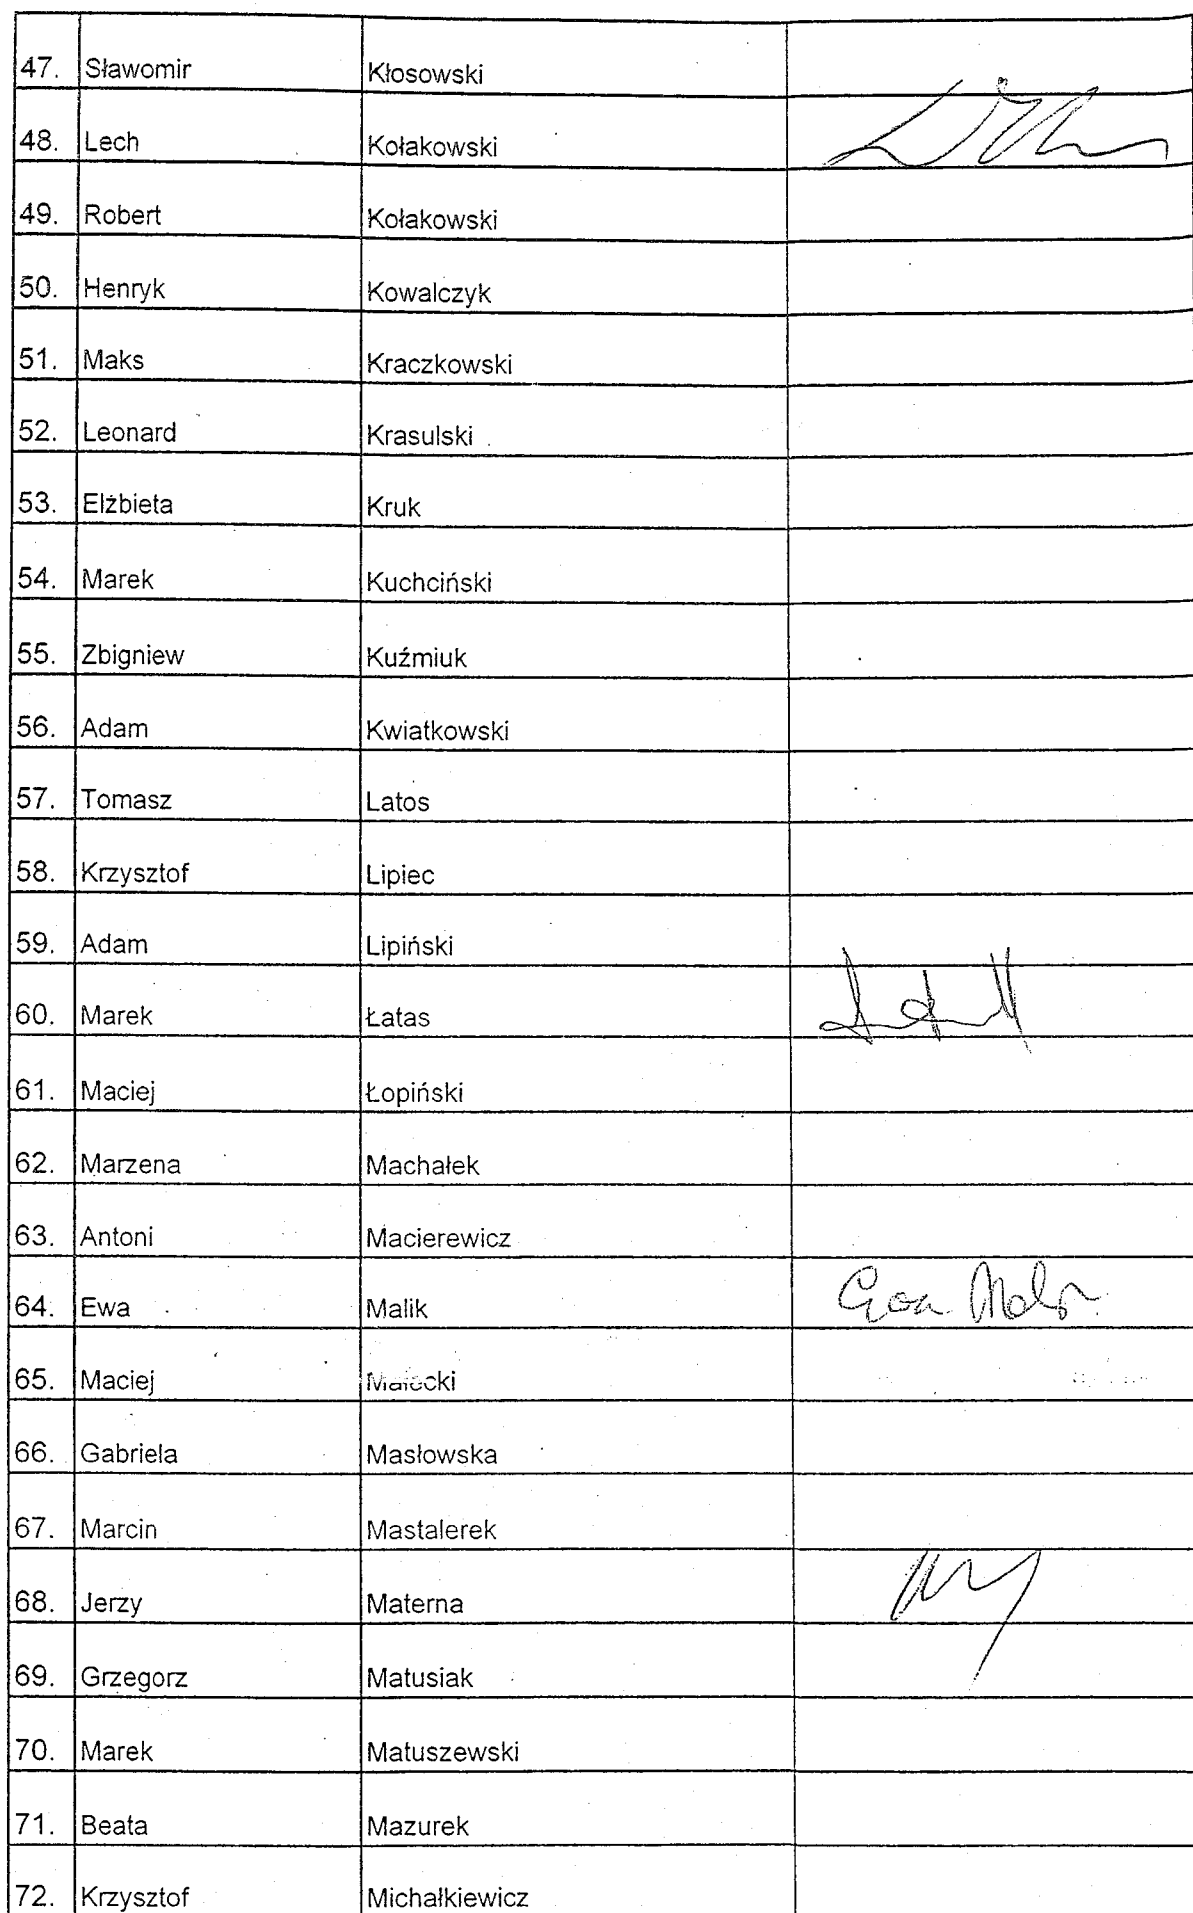 47. Sławomir Kłosowski
48. Lech Kołakowski
49. Robert Kołakowski
50. Henryk Kowalczyk
51. Maks Kraczkowski
52. Leonard Krasulski
53. Elżbieta Kruk
54. Marek Kuchciński
55. Zbigniew Kuźmiuk
56. Adam Kwiatkowski
57. Tomasz Latos
58. Krzysztof Lipiec
59. Adam Lipiński
60. Marek Łatas
61. Maciej Łopiński
62. Marzena Machałek
63. Antoni Macierewicz
64. Ewa Malik Ewa Malik
65. Maciej Małecki
66. Gabriela Masłowska
67. Marcin Mastalerek
68. Jerzy Materna
69. Grzegorz Matusiak
70. Marek Matuszewski
71. Beata Mazurek
72. Krzysztof Michałkiewicz